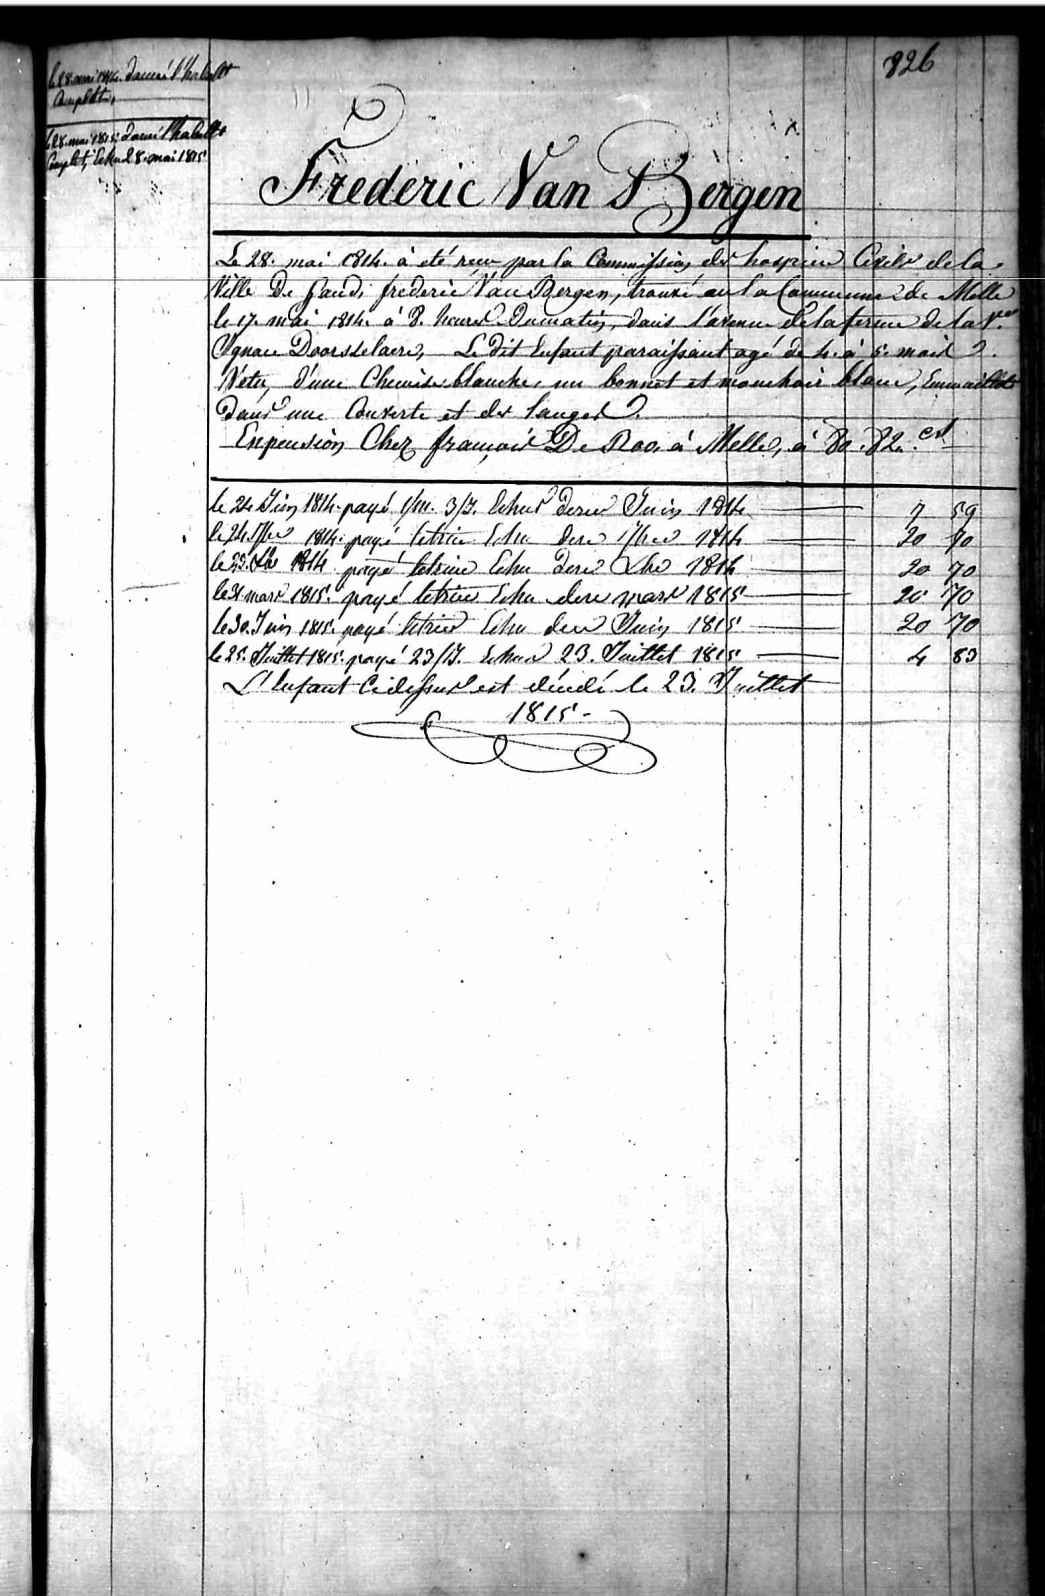 826
le 28 mai 1814. donné l'habillt
Complette,
le 28. mai 1815. donné l'habillt
Complet, Echu 28. mai 1815
Frederic Van Bergen
Le 28. mai 1814. à été recu par la Commission des hospices Civils de la
Ville De Gand, frederic Van Bergen, trouvé au la Commune de Melle
le 17. mai 1814. à 8. heures Du matin, dans l'avenue de la ferme de la Ve.
Ignace Doorselaere, Le Dit Enfant paraissant agé de 4. à 5. mois.
Vetu, d'une Chemise blanche, un bonnet et mouchoir blanc, Emmaillote
dans une Couverte et des langes.
En pension Chez françois De Roo, à Melle, à 80. 82. cs
le 24 Juin 1814. payé 1/m. 3/J. Echus dere Juin 1814 7 59
le 24. 7bre 1814. payé letrim Echu dere 7bre 1814 20 70
le 23. Xbre 1814 payé letrime Echu dere Xbre 1814 20 70
le 21 mars 1815. payé letrim Echu dere mars 1815 20 70
le 30. Juin 1815. payé letrim Echu dere Juin 1815 20 70
le 25. Juillet 1815. payé 23/J. Echus 23. Juillet 1815 4 83
L'Enfant Cidessus est décédé le 23. Juillet
1815 -